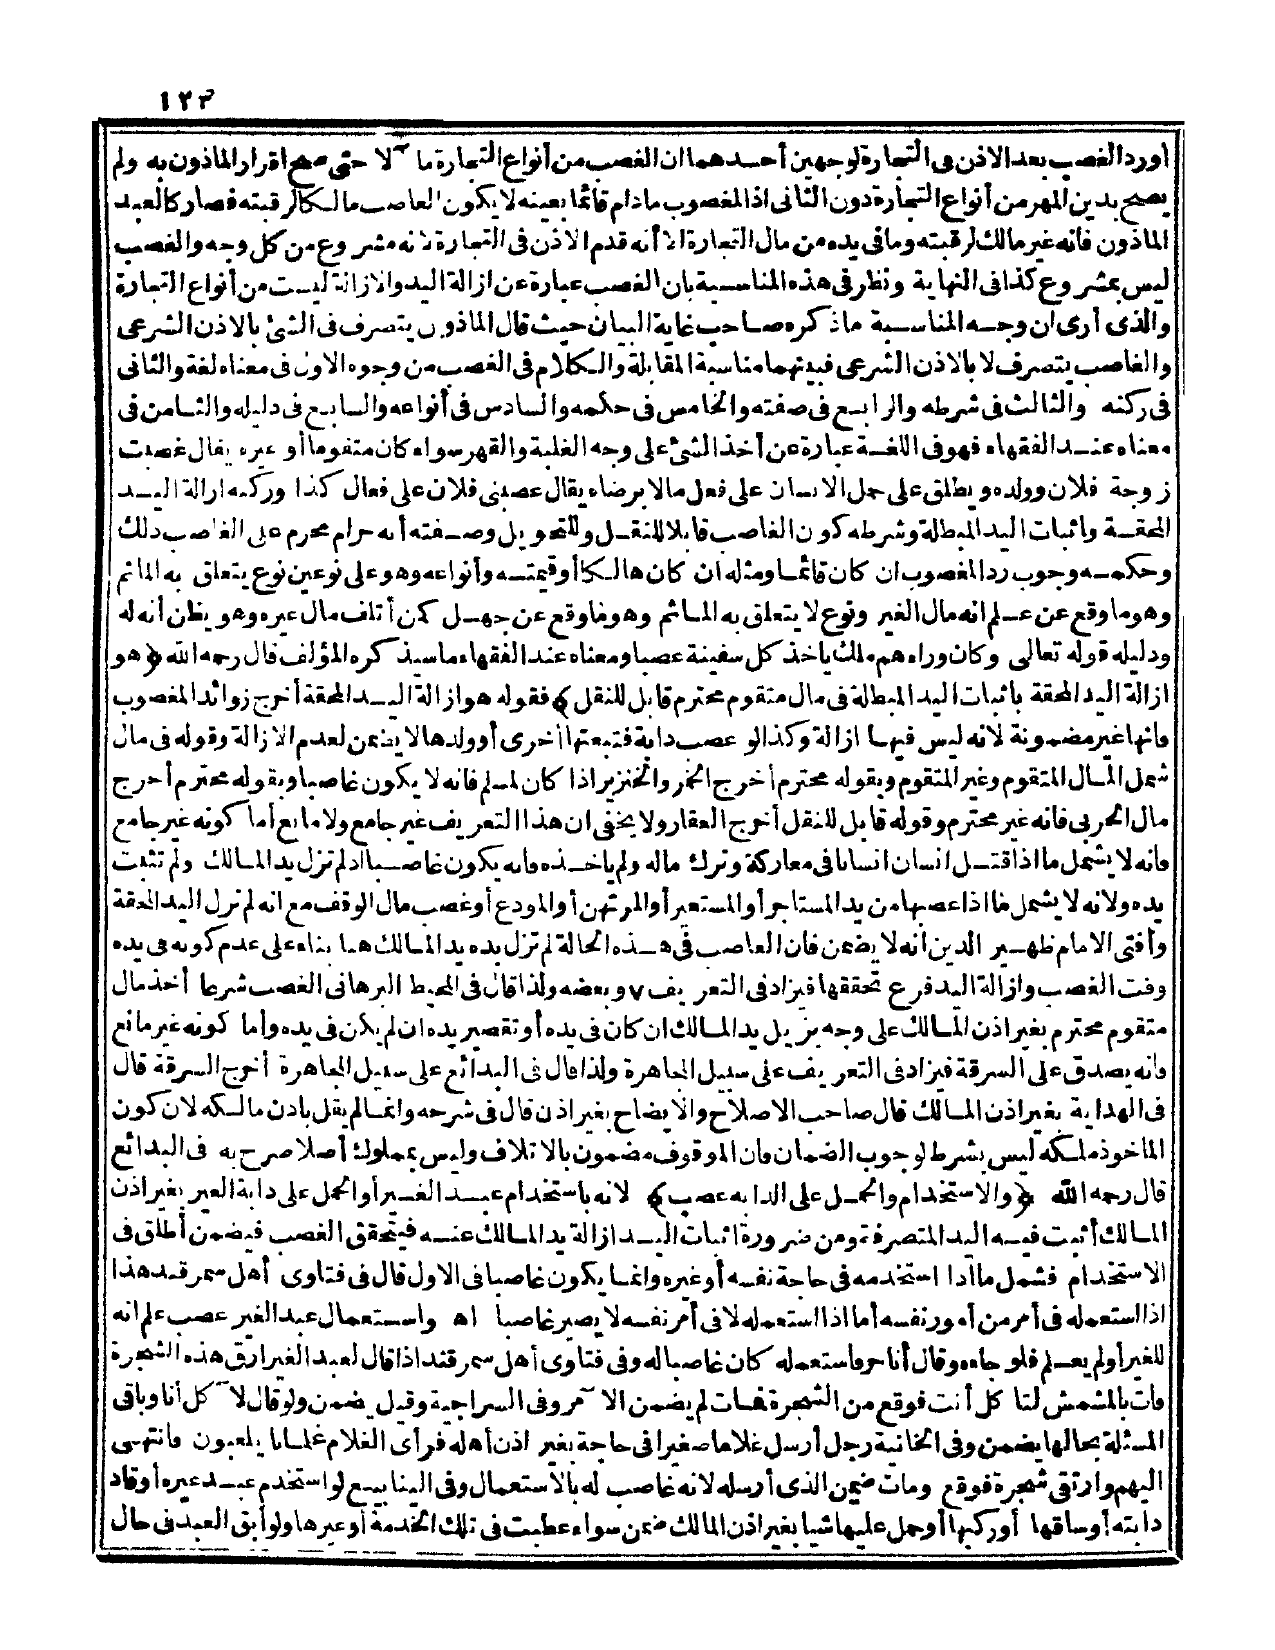 ١٢٣
أورد الغصب بعد الاذن فى التجارة لوجهين أحدهما ان الغصب من أنواع التجارة مآلا حتى صح اقرار الماذون به ولم
يصح بدين المهر من أنواع التجارة دون الثانى اذ المغصوب مادام قائما بعينه لا يكون الغاصب مالكا لرقبته فصار كالعبد
الماذون فانه غير مالك لرقبته وما فى يده من مال التجارة الا أنه قدم الاذن فى التجارة لانه مشروع من كل وجه والغصب
ليس بمشروع كذا فى النهاية ونظر فى هذه المناسبة بان الغصب عبارة عن ازالة اليد والازالة ليست من أنواع التجارة
والذى أرى ان وجه المناسبة ما ذكره صاحب غاية البيان حيث قال الماذون يتصرف فى الشئ بالاذن الشرعى
والغاصب يتصرف لا بالاذن الشرعى فبينهما مناسبة المقابلة والكلام فى الغصب من وجوه الاول فى معناه لغة والثانى
فى ركنه والثالث فى شرطه والرابع فى صفته والخامس فى حكمه والسادس فى أنواعه والسابع فى دليله والثامن فى
معناه عند الفقهاء فهو فى اللغة عبارة عن أخذ الشئ على وجه الغلبة والقهر سواء كان متقوما أو غيره يقال غصبت
زوجة فلان وولده ويطلق على حمل الانسان على فعل مالا برضاه يقال غصبنى فلان على فعال كذا وركنه ازالة اليد
المحقة واثبات اليد المبطلة وشرطه كون الغاصب قابلا للنقل وللتحويل وصفته أنه حرام محرم على الغاصب ذلك
وحكمه وجوب رد المغصوب ان كان قائما ومثله ان كان هالكا أو قيمته وأنواعه وهو على نوعين نوع يتعلق به المأثم
وهو ما وقع عن علم انه مال الغير ونوع لا يتعلق به المأثم وهو ما وقع عن جهل كمن أتلف مال غيره وهو يظن أنه له
ودليله قوله تعالى وكان وراءهم ملك ياخذ كل سفينة غصبا ومعناه عند الفقهاء ما سيذكره المؤلف قال رحمه الله ﴿هو
ازالة اليد المحقة باثبات اليد المبطلة فى مال متقوم محترم قابل للنقل﴾ فقوله هو ازالة اليد المحقة أخرج زوائد المغصوب
فانها غير مضمونة لانه ليس فيها ازالة وكذا لو غصب دابة فتبعتها أخرى أو ولدها لا يضمن لعدم الازالة وقوله فى مال
شمل المال المتقوم وغير المتقوم وبقوله محترم أخرج الخمر والخنزير اذا كان لمسلم فانه لا يكون غاصبا وبقوله محترم أخرج
مال الحربى فانه غير محترم وقوله قابل للنقل أخرج العقار ولا يخفى ان هذا التعريف غير جامع ولا مانع أما كونه غير جامع
فانه لا يشمل ما اذا قتل انسان انسانا فى معاركة وترك ماله ولم ياخذه فانه يكون غاصبا اذ لم تزل يد المالك ولم تثبت
يده ولانه لا يشمل ما اذا غصبها من يد المستاجر أو المستعير أو المرتهن أو المودع أو غصب مال الوقف مع انه لم تزل اليد المحقة
وأفتى الامام ظهير الدين انه لا يضمن فان الغاصب فى هذه الحالة لم تزل يده يد المالك هنا بناء على عدم كونه فى يده
وقت الغصب وازالة اليد فرع تحققها فيزاد فى التعريف ٧ وبعضه ولذا قال فى المحيط البرهانى الغصب شرعا أخذ مال
متقوم محترم بغير اذن المالك على وجه يزيل يد المالك ان كان فى يده أو تقصير يده ان لم يكن فى يده وأما كونه غير مانع
فانه يصدق على السرقة فيزاد فى التعريف على سبيل المجاهرة ولذا قال فى البدائع على سبيل المجاهرة أخرج السرقة قال
فى الهداية بغير اذن المالك قال صاحب الاصلاح والايضاح بغير اذن قال فى شرحه وانما لم يقل باذن مالكه لان كون
الماخوذ ملكه ليس بشرط لوجوب الضمان فان الموقوف مضمون بالاتلاف وليس بمملوك أصلا صرح به فى البدائع
قال رحمه الله ﴿والاستخدام والحمل على الدابة غصب﴾ لانه باستخدام عبد الغير أو الحمل على دابة الغير بغير اذن
المالك أثبت فيه اليد المتصرفة ومن ضرورة اثبات اليد ازالة يد المالك عنه فيتحقق الغصب فيضمن أطلق فى
الاستخدام فشمل ما اذا استخدمه فى حاجة نفسه أو غيره وانما يكون غاصبا فى الاول قال فى فتاوى أهل سمرقند هذا
اذا استعمله فى أمر من أمور نفسه أما اذا استعمله لا فى أمر نفسه لا يصير غاصبا اه واستعمال عبد الغير غصب علم انه
للغير أو لم يعلم فلو جاءه وقال أنا حر فاستعمله كان غاصبا له وفى فتاوى أهل سمرقند اذا قال لعبد الغير ارق هذه الشجرة
فات بالمشمش لنا كل أنت فوقع من الشجرة فمات لم يضمن الآمر وفى السراجية وقيل يضمن ولو قال لآكل أنا وباقى
المسئلة بحالها يضمن وفى الخانية رجل أرسل غلاما صغيرا فى حاجة بغير اذن أهله فرأى الغلام غلمانا يلعبون فانتهى
اليهم وارتقى شجرة فوقع ومات ضمن الذى أرسله لانه غاصب له بالاستعمال وفى الينابيع لو استخدم عبد غيره أو قاد
دابته أو ساقها أو ركبها أو حمل عليها شيا بغير اذن المالك ضمن سواء عطبت فى تلك الخدمة أو غيرها ولو أبق العبد فى حال